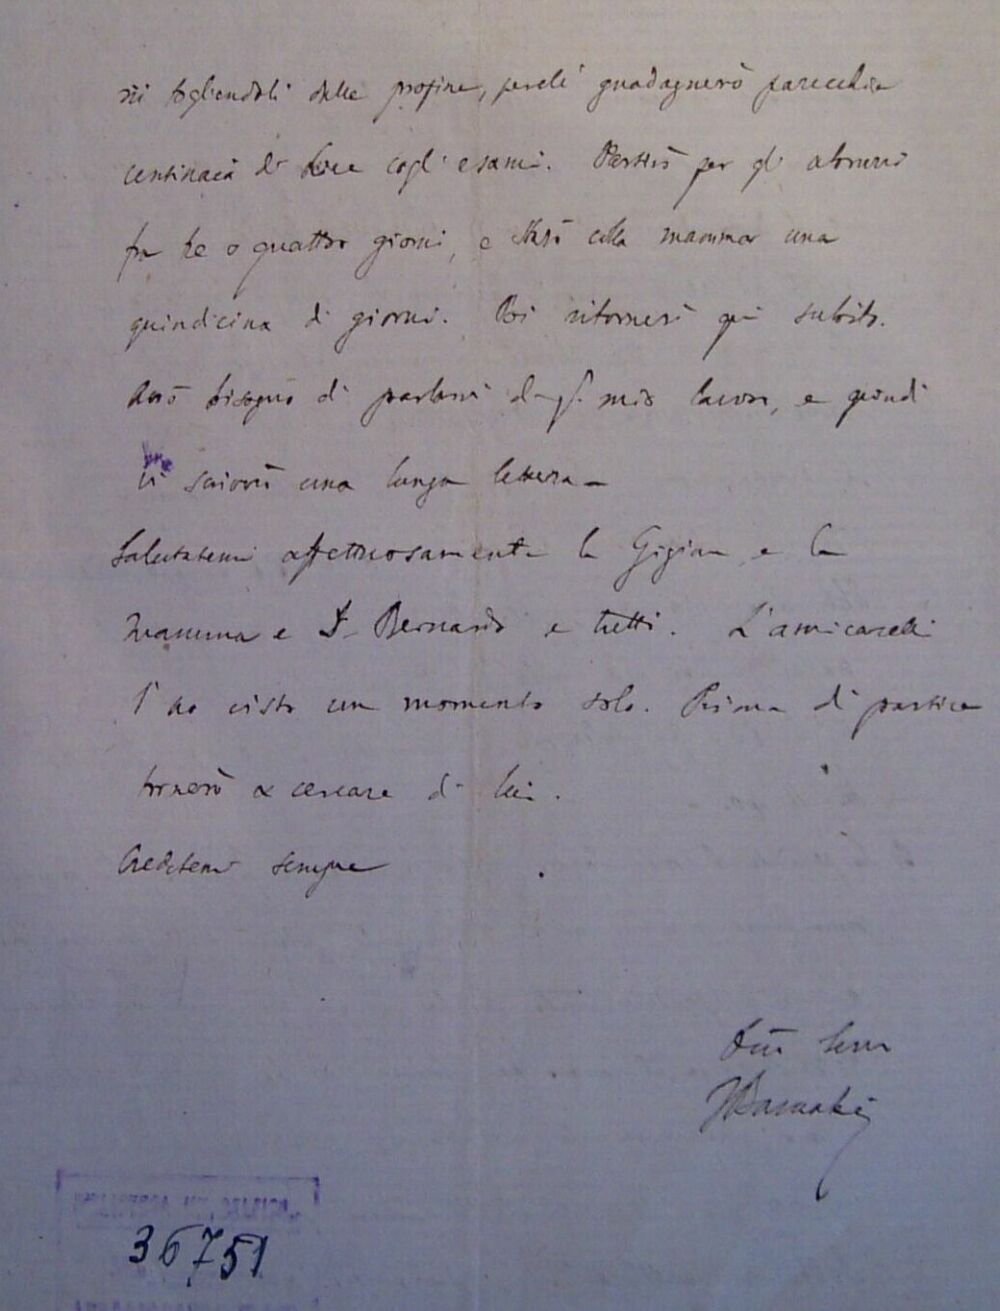 togliendoli dalle perché guadagnerò parecchie
centinaia di Lire cogli esami. Partirò per gli abruzzi
fra tre o quattro giorni, e starò colla mamma una
quindicina di giorni. Poi ritornerò qui subito.
Avrò bisogno di parlarvi mio lavoro, e quindi
vi scriverò una lunga lettera –
Salutatemi affettuosamente la Gigina e la
mamma e D. Bernardo e tutti. L'amicarelli
l'ho visto un momento solo. Prima di partire
tornerò a cercare di lui.
Credetemi sempre
36751